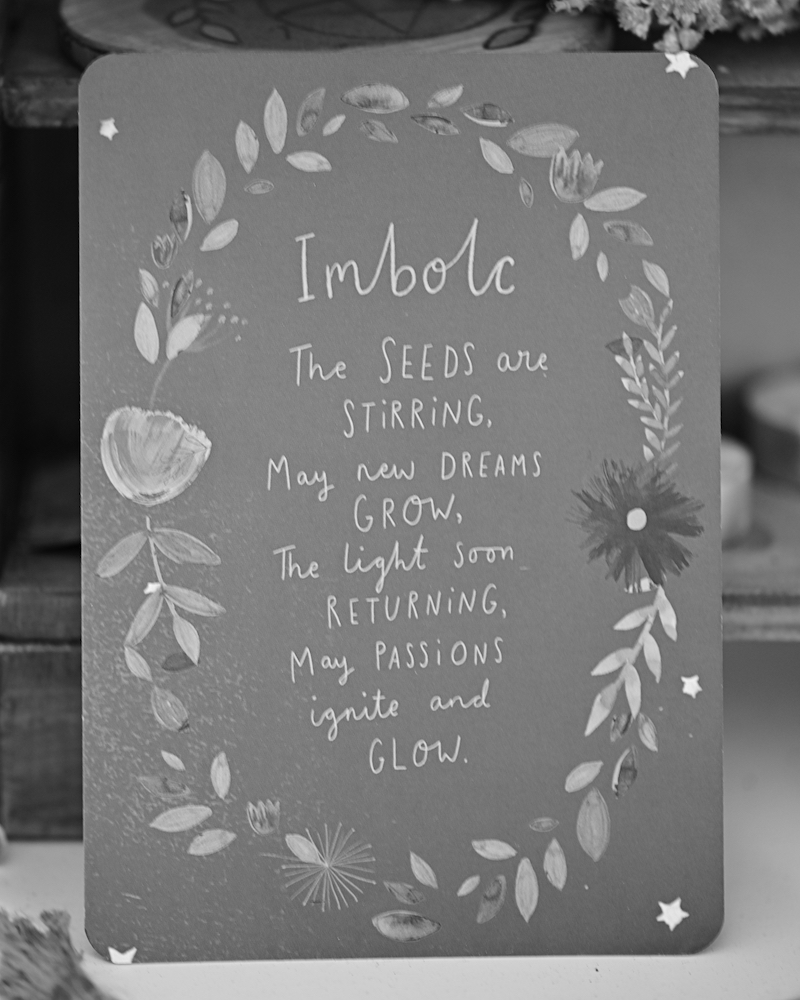 Imbolc
The SEEDS are
STiRRiNG,
May new DREAMS
GROW,
The light soon
RETURNiNG,
May PASSiONS
ignite and
GLOW.